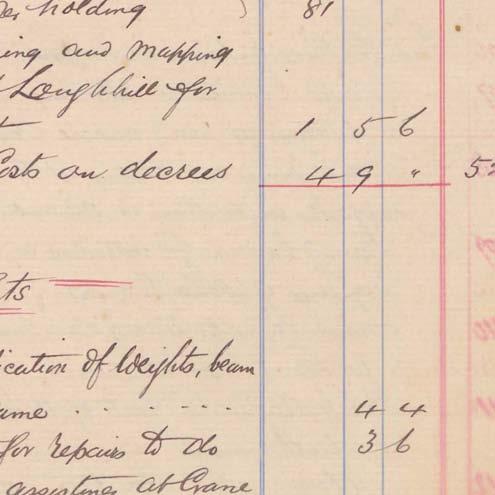 holding ) 81
ing and mapping
Loughhill for
1 5 6
Costs on decrees 4 9 " 52
ts
ication of Weights, beam
ame . . . . . . . 4 4
for repairs to do 3 6
assisting at Crane